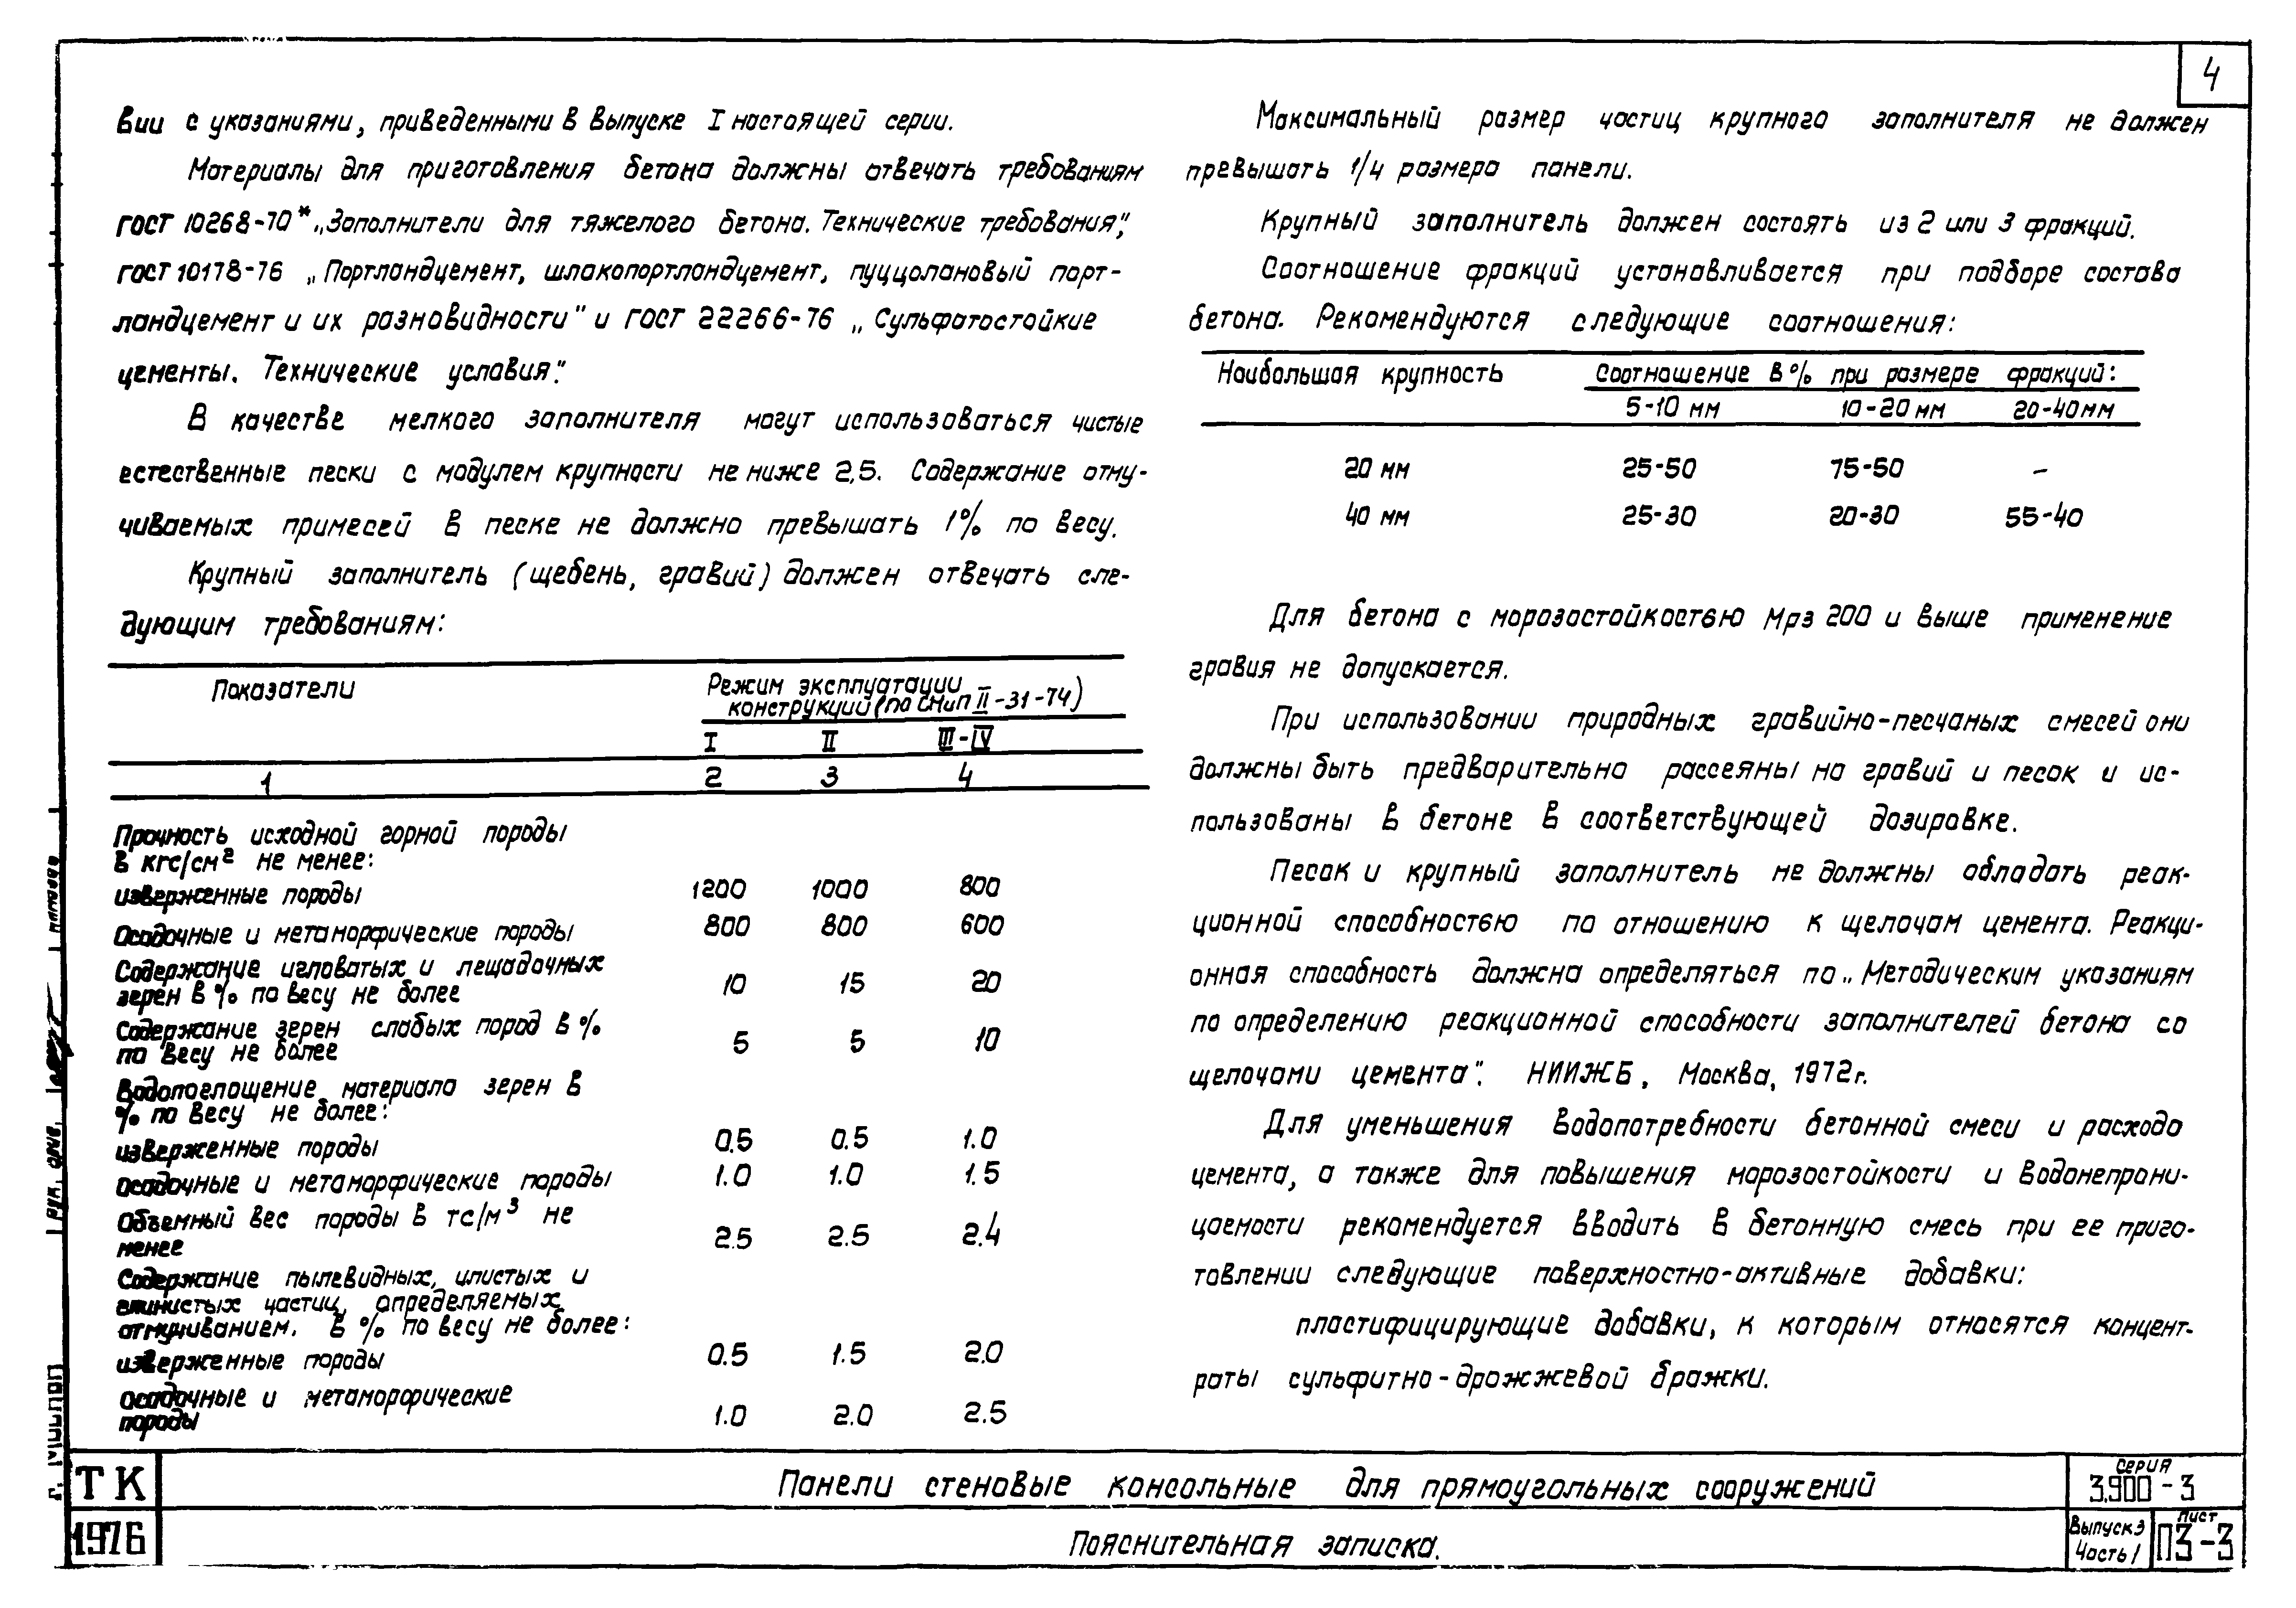 4
вии с указаниями, приведенными в выпуске I настоящей серии.
Материалы для приготовления бетона должны отвечать требованиям
ГОСТ 10268-70* „Заполнители для тяжелого бетона. Технические требования",
ГОСТ 10178-76 „Портландцемент, шлакопортландцемент, пуццолановый порт-
ландцемент и их разновидности" и ГОСТ 22266-76 „Сульфатостойкие
цементы. Технические условия".
В качестве мелкого заполнителя могут использоваться чистые
естественные пески с модулем крупности не ниже 2,5. Содержание отму-
чиваемых примесей в песке не должно превышать 1% по весу.
Крупный заполнитель (щебень, гравий) должен отвечать сле-
дующим требованиям:
Показатели Режим эксплуатации
конструкций (по СНиП II-31-74)
I II III-IV
1 2 3 4
Прочность исходной горной породы
в кгс/см² не менее:
изверженные породы 1200 1000 800
Осадочные и метаморфические породы 800 800 600
Содержание игловатых и лещадочных
зерен в % по весу не более 10 15 20
Содержание зерен слабых пород в %
по весу не более 5 5 10
Водопоглощение материала зерен в
% по весу не более:
изверженные породы 0.5 0.5 1.0
осадочные и метаморфические породы 1.0 1.0 1.5
Объемный вес породы в тс/м³ не
менее 2.5 2.5 2.4
Содержание пылевидных, илистых и
глинистых частиц, определяемых
отмучиванием. в % по весу не более:
изверженные породы 0.5 1.5 2.0
осадочные и метаморфические
породы 1.0 2.0 2.5
Максимальный размер частиц крупного заполнителя не должен
превышать 1/4 размера панели.
Крупный заполнитель должен состоять из 2 или 3 фракций.
Соотношение фракций устанавливается при подборе состава
бетона. Рекомендуются следующие соотношения:
Наибольшая крупность Соотношение в % при размере фракций:
5-10 мм 10-20 мм 20-40 мм
20 мм 25-50 75-50 –
40 мм 25-30 20-30 55-40
Для бетона с морозостойкостью Мрз 200 и выше применение
гравия не допускается.
При использовании природных гравийно-песчаных смесей они
должны быть предварительно рассеяны на гравий и песок и ис-
пользованы в бетоне в соответствующей дозировке.
Песок и крупный заполнитель не должны обладать реак-
ционной способностью по отношению к щелочам цемента. Реакци-
онная способность должна определяться по „Методическим указаниям
по определению реакционной способности заполнителей бетона со
щелочами цемента". НИИЖБ, Москва, 1972г.
Для уменьшения водопотребности бетонной смеси и расхода
цемента, а также для повышения морозостойкости и водонепрони-
цаемости рекомендуется вводить в бетонную смесь при ее приго-
товлении следующие поверхностно-активные добавки:
пластифицирующие добавки, к которым относятся концент-
раты сульфитно-дрожжевой бражки.
ТК
1976
Панели стеновые консольные для прямоугольных сооружений
Пояснительная записка.
Серия
3.900-3
Выпуск 3
Часть 1
Лист
ПЗ-3